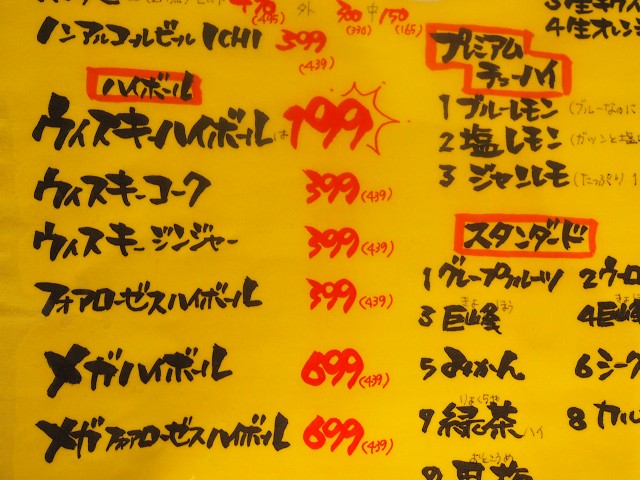 ノンアルコールビール ICHI 399 (439)
ハイボール
ウィスキーハイボールは 199
ウィスキーコーク 399 (439)
ウィスキージンジャー 399 (439)
フォアローゼスハイボール 399 (439)
メガハイボール 699 (439)
メガフォアローゼスハイボール 699 (439)
外 300 (330) 中 150 (165)
4生オレン
プレミアム
チューハイ
1 ブルーレモン (ブルーなのに
2 塩レモン (ガツンと塩
3 ジャンレモ (たっぷり 1
スタンダード
1 グレープフルーツ 2 ウーロ
3 巨峰 きょほう 4 巨峰
5 みかん 6 シーク
7 緑茶ハイ りょくちゃ 8 カル